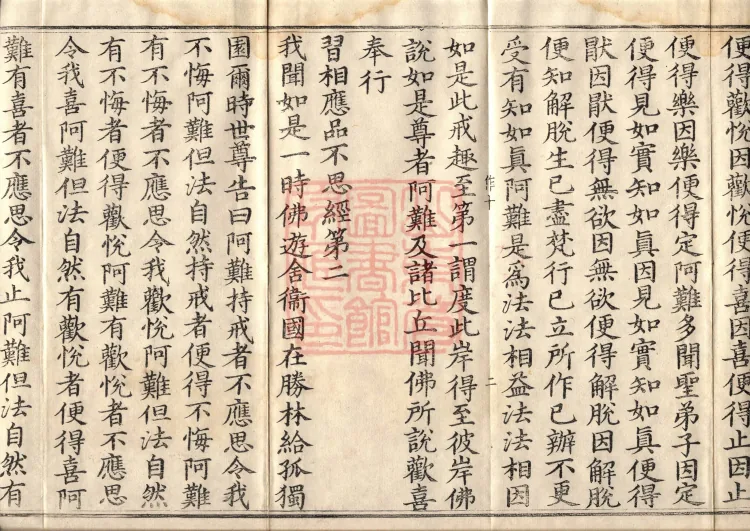 便得歡悅因歡悅便得喜因喜便得止因止
便得樂因樂便得定阿難多聞聖弟子因定
便得見如實知如眞因見如實知如眞便得
猒因猒便得無欲因無欲便得解脫因解脫
便知解脫生已盡梵行已立所作已辦不更
受有知如眞阿難是爲法法相益法法相因
作十 二
如是此戒趣至第一謂度此岸得至彼岸佛
說如是尊者阿難及諸比丘聞佛所說歡喜
奉行
習相應品不思經第二
我聞如是一時佛遊舍衞國在勝林給孤獨
園爾時世尊告曰阿難持戒者不應思令我
不悔阿難但法自然持戒者便得不悔阿難
有不悔者不應思令我歡悅阿難但法自然
有不悔者便得歡悅阿難有歡悅者不應思
令我喜阿難但法自然有歡悅者便得喜阿
難有喜者不應思令我止阿難但法自然有
圖書館